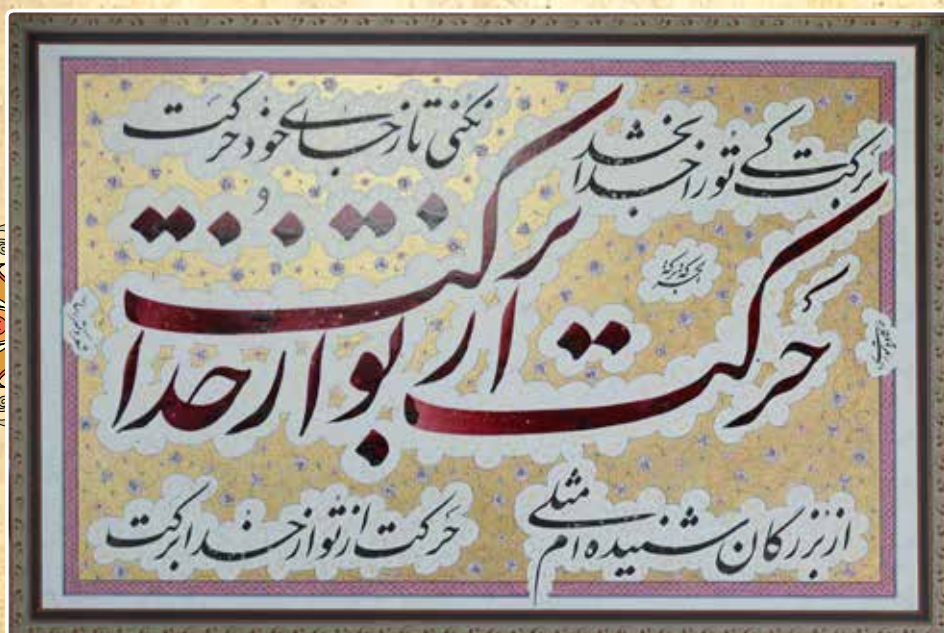 برکت کی تو را خدا بخشد
نکنی تا ز جای خود حرکت
حرکت از تو از خدا برکت
از بزرگان شنیده ام مثلی
حرکت از تو از خدا برکت